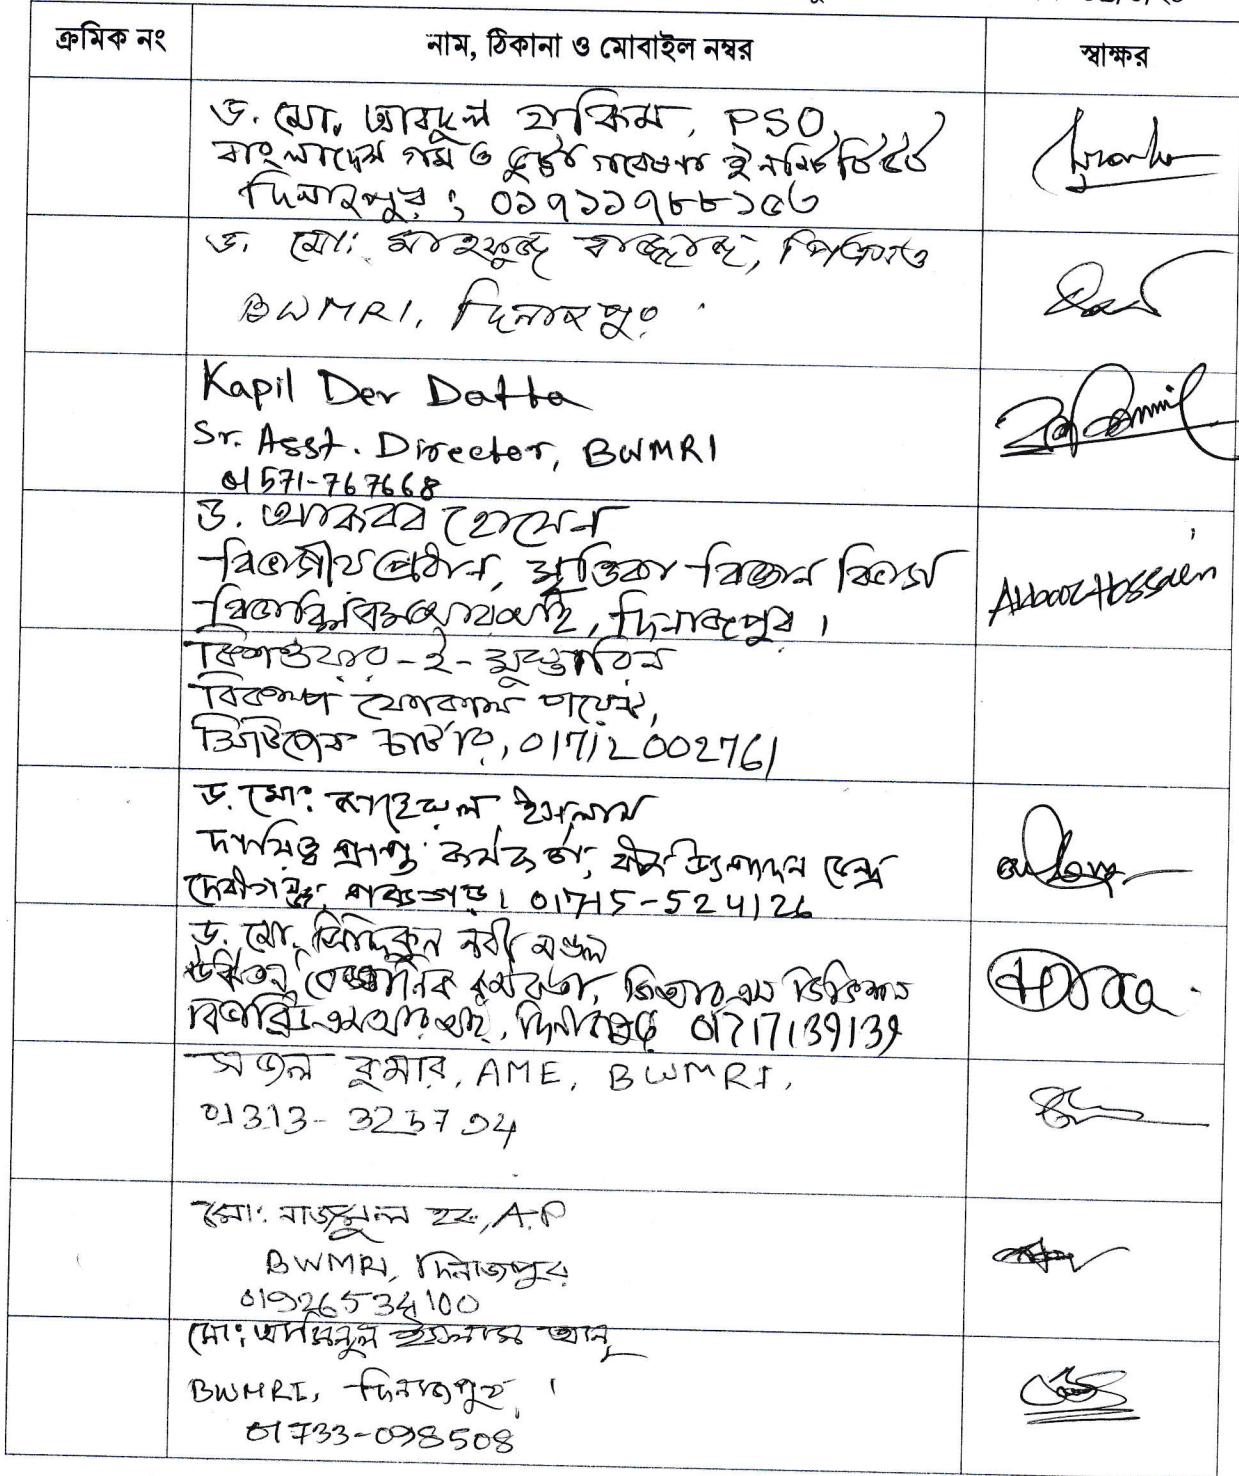 ক্রমিক নং নাম, ঠিকানা ও মোবাইল নম্বর স্বাক্ষর
ড. মো. আবদুল হাকিম, PSO
বাংলাদেশ গম ও ভুট্টা গবেষণা ইনস্টিটিউট
দিনাজপুর; ০১৭১১৭৮৮১৫৩
ড. মো: মাহফুজ বাজ্জাজ, পিএসও
BWMRI, দিনাজপুর
Kapil Dev Datta
Sr. Asst. Director, BWMRI
01571-767668
ড. আকবর হোসেন
বিভাগীয় প্রধান, মৃত্তিকা বিজ্ঞান বিভাগ
বিডাব্লিউএমআরআই, দিনাজপুর।
Akbar Hossain
কিশওয়ার-ই-মুস্তারিন
বিকল্প ফোকাল পয়েন্ট,
সিটিজেন চার্টার, 01712002761
ড. মো: জাহেরুল ইসলাম
দায়িত্ব প্রাপ্ত কর্মকর্তা, বীজ উৎপাদন কেন্দ্র
দেবীগঞ্জ, পঞ্চগড়। 01715-524126
ড. মো. সিদ্দিকুন নবী মণ্ডল
ঊর্ধ্বতন বৈজ্ঞানিক কর্মকর্তা, জিআরএস ডিভিশন
বিডাব্লিউএমআরআই, দিনাজপুর 01717139139
সজল কুমার, AME, BWMRI,
মো: নাজমুল হক, A.P
BWMRI, দিনাজপুর
01926534100
মো: আমিনুল ইসলাম আনু
BWMRI, দিনাজপুর।
01733-098508